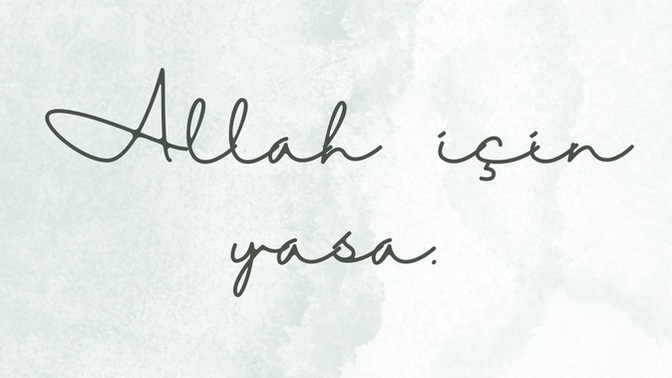 Allah için
yasa.